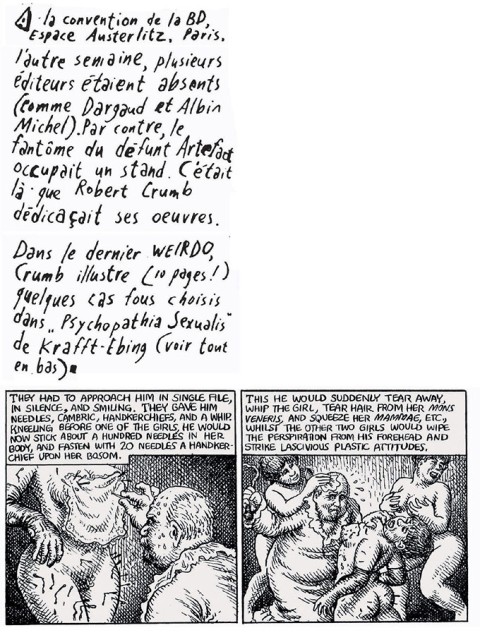 A la convention de la BD,
Espace Austerlitz. Paris.
l'autre semaine, plusieurs
éditeurs étaient absents
(comme Dargaud et Albin
Michel). Par contre, le
fantôme du défunt Artefact
occupait un stand. C'était
là que Robert Crumb
dédicaçait ses oeuvres.
Dans le dernier WEIRDO,
Crumb illustre (10 pages!)
quelques cas fous choisis
dans „Psychopathia Sexualis"
de Krafft-Ebing (voir tout
en bas)
THEY HAD TO APPROACH HIM IN SINGLE FILE,
IN SILENCE, AND SMILING. THEY GAVE HIM
NEEDLES, CAMBRIC, HANDKERCHIEFS, AND A WHIP.
KNEELING BEFORE ONE OF THE GIRLS, HE WOULD
NOW STICK ABOUT A HUNDRED NEEDLES IN HER
BODY, AND FASTEN WITH 20 NEEDLES A HANDKER-
CHIEF UPON HER BOSOM.
THIS HE WOULD SUDDENLY TEAR AWAY,
WHIP THE GIRL, TEAR HAIR FROM HER MONS
VENERIS, AND SQUEEZE HER MAMMAE, ETC.,
WHILST THE OTHER TWO GIRLS WOULD WIPE
THE PERSPIRATION FROM HIS FOREHEAD AND
STRIKE LASCIVIOUS PLASTIC ATTITUDES.